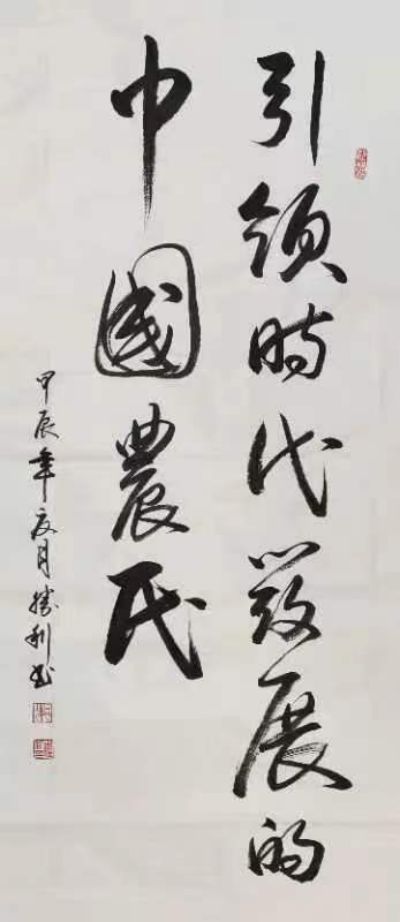 引领時代發展的
中國農民
甲辰年夏月勝利书